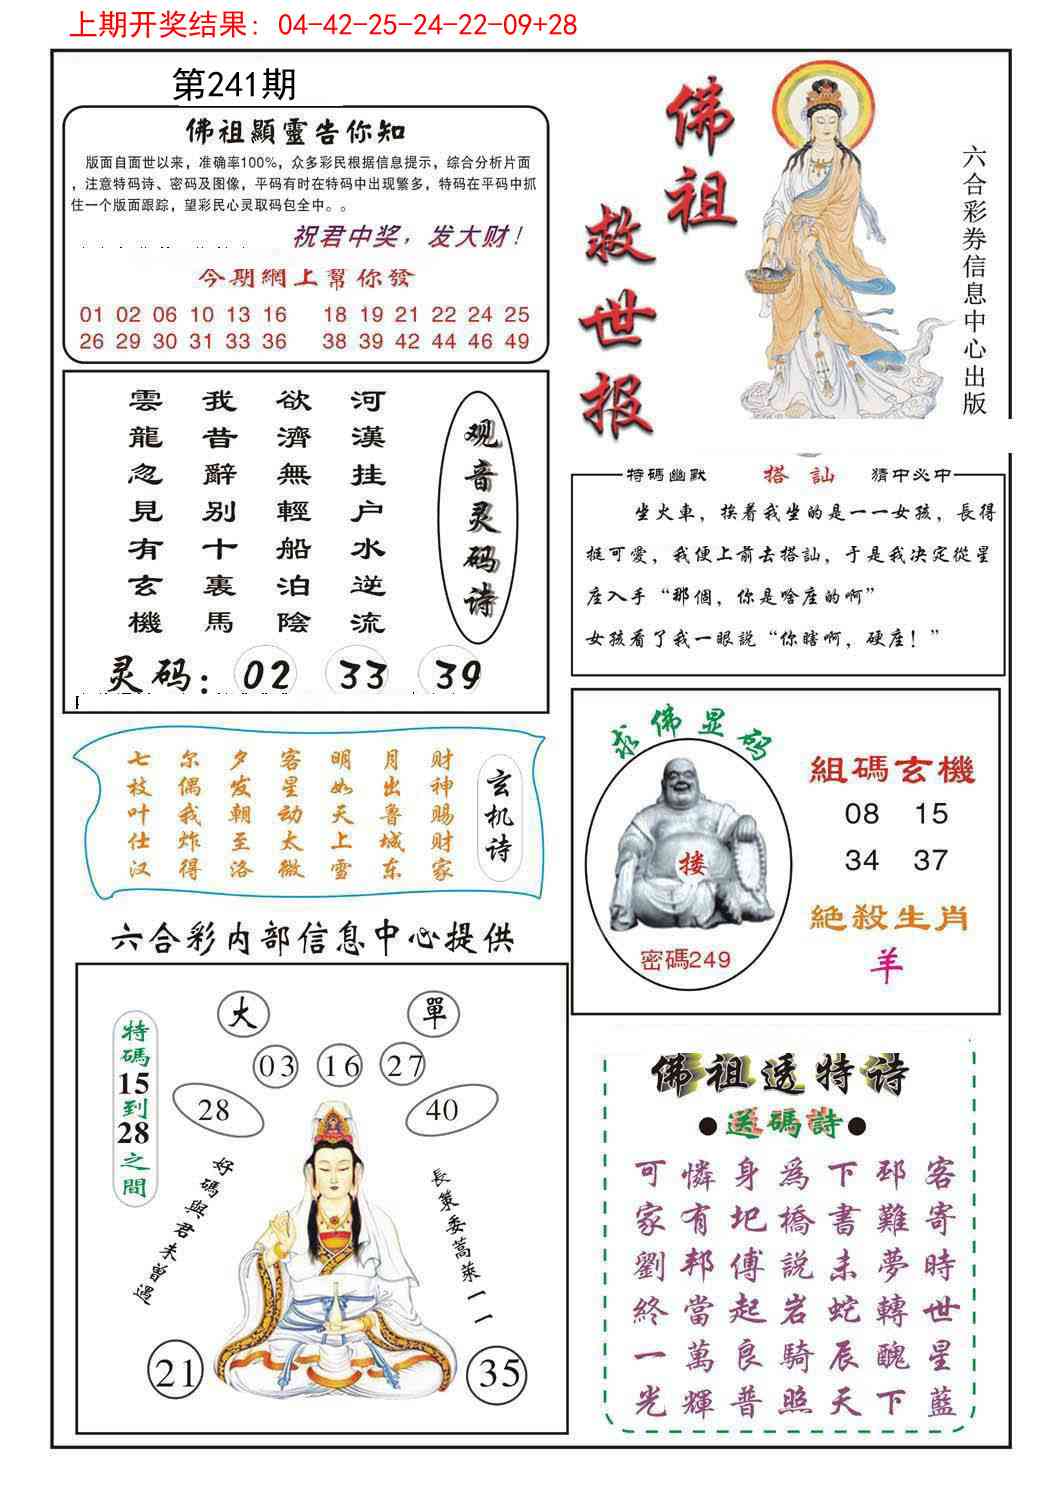 上期开奖结果: 04-42-25-24-22-09+28
第241期
佛祖顯靈告你知
版面自面世以来，准确率100%，众多彩民根据信息提示，综合分析片面
，注意特码诗、密码及图像，平码有时在特码中出现繁多，特码在平码中抓
住一个版面跟踪，望彩民心灵取码包全中。。
祝君中奖，发大财！
今期網上幫你發
01 02 06 10 13 16 18 19 21 22 24 25
26 29 30 31 33 36 38 39 42 44 46 49
佛祖
救世报
六合彩券信息中心出版
河漢挂户水逆流
欲濟無輕船泊陰
我昔辭别十裏馬
雲龍忽見有玄機
观音灵码诗
灵码: 02 33 39
特碼幽默 搭訕 猜中必中
坐火車，挨着我坐的是一一女孩，長得
挺可愛，我便上前去搭訕，于是我决定從星
座入手“那個，你是啥座的啊”
女孩看了我一眼説“你瞎啊，硬座！”
玄机诗
财神赐财家
月出鲁城东
明如天上雪
客星动太微
夕发朝至洛
尔偶我炸得
七枝叶仕汉
求佛显码
搂
密碼249
組碼玄機
08 15
34 37
絕殺生肖
羊
六合彩内部信息中心提供
大 單
03 16 27
28 40
特碼15到28之間
好碼與君未曾遇
長策委蒿萊一一
21 35
佛祖透特诗
●送碼詩●
可憐身爲下邳客
家有圯橋書難寄
劉邦傅説未夢時
終當起岩蛇轉世
一萬良騎辰醜星
光輝普照天下藍